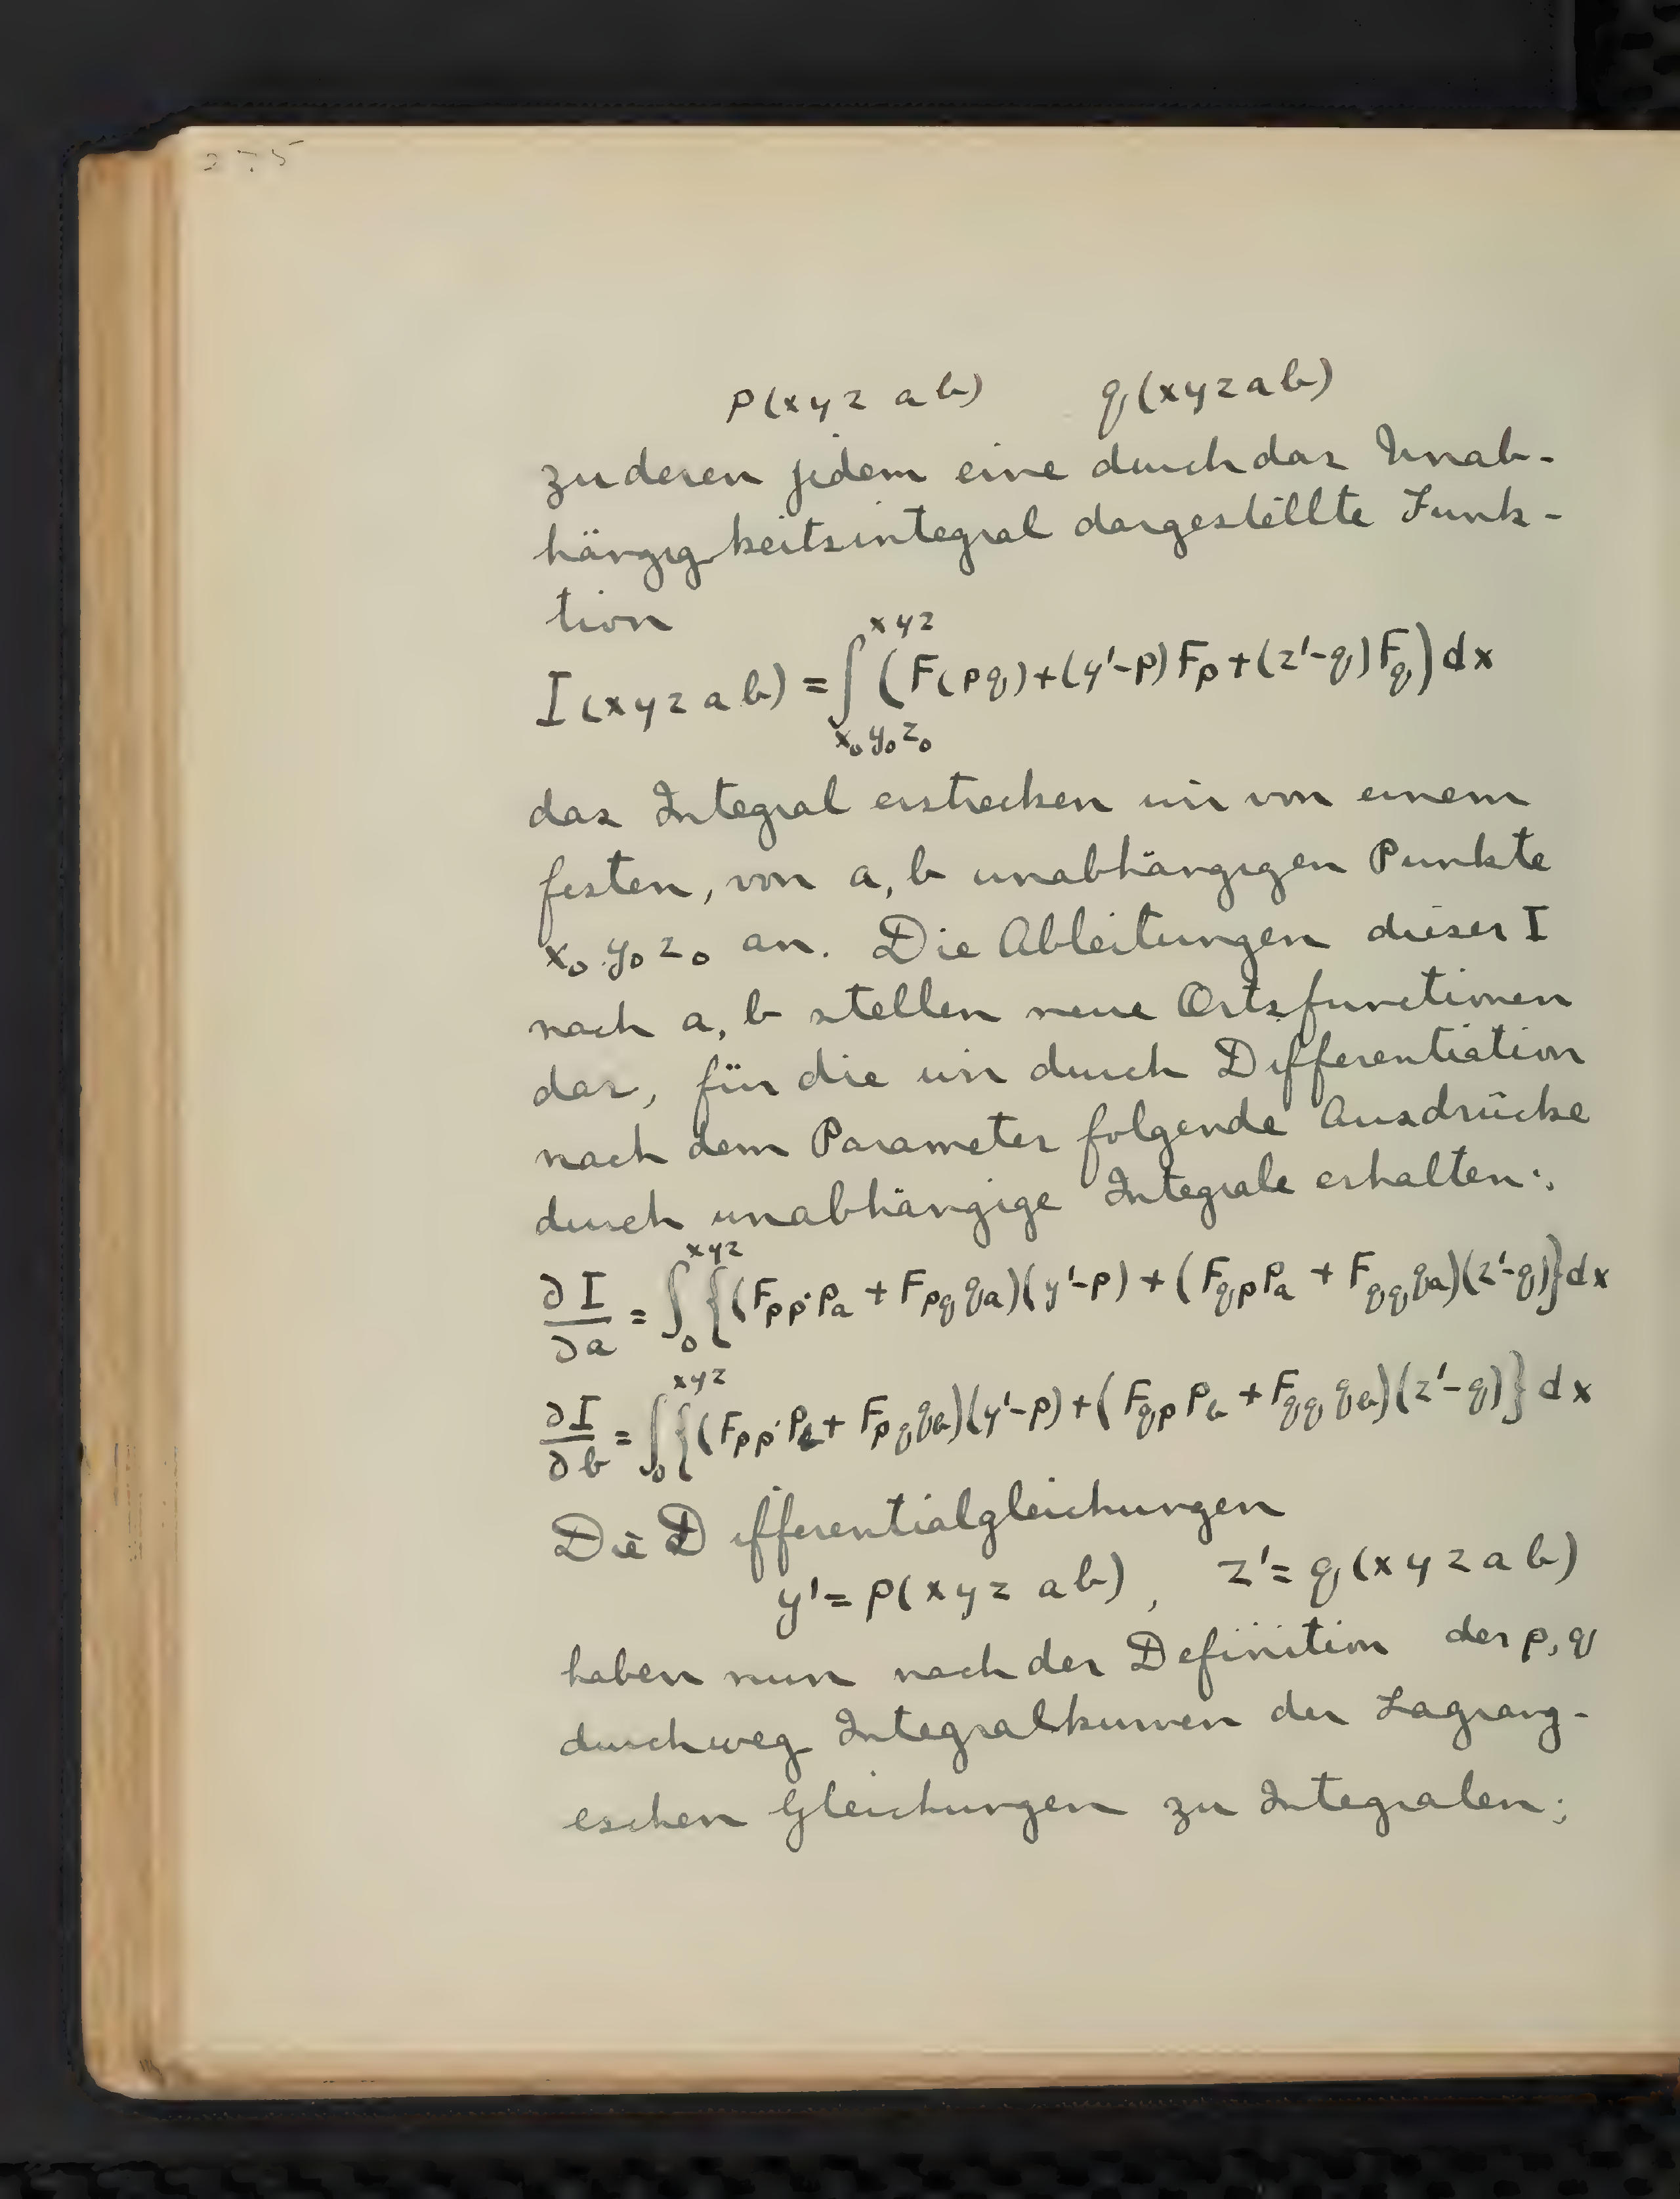 275
p(xyz ab) q(xyzab)
zu deren jedem eine durch das Unab-
hängigkeitsintegral dargestellte Funk-
tion
I(xyzab) = ∫_{x₀y₀z₀}^{xyz} (F(pq)+(y'-p)F_p+(z'-q)F_q)dx
das Integral erstrecken wir von einem
festen, von a, b unabhängigen Punkte
x₀ y₀ z₀ an. Die Ableitungen dieser I
nach a, b stellen neue Ortsfunctionen
dar, für die wir durch Differentiation
nach dem Parameter folgende Ausdrücke
durch unabhängige Integrale erhalten:
∂I/∂a = ∫_0^{xyz} {(F_{pp}·p_a + F_{pq} q_a)(y'-p) + (F_{qp} p_a + F_{qq} q_a)(z'-q)}dx
∂I/∂b = ∫_0^{xyz} {(F_{pp}·p_b + F_{pq} q_b)(y'-p) + (F_{qp} p_b + F_{qq} q_b)(z'-q)}dx
Die Differentialgleichungen
y' = p(xyz ab), z' = q(xyzab)
haben nun nach der Definition der p, q
durchweg Integralkurven der Lagrang-
eschen Gleichungen zu Integralen;